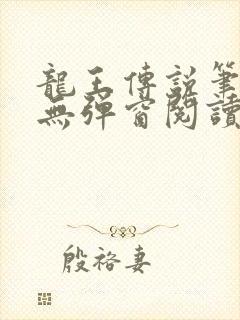 龍王傳說筆
無彈窗閱讀
殷裕妻